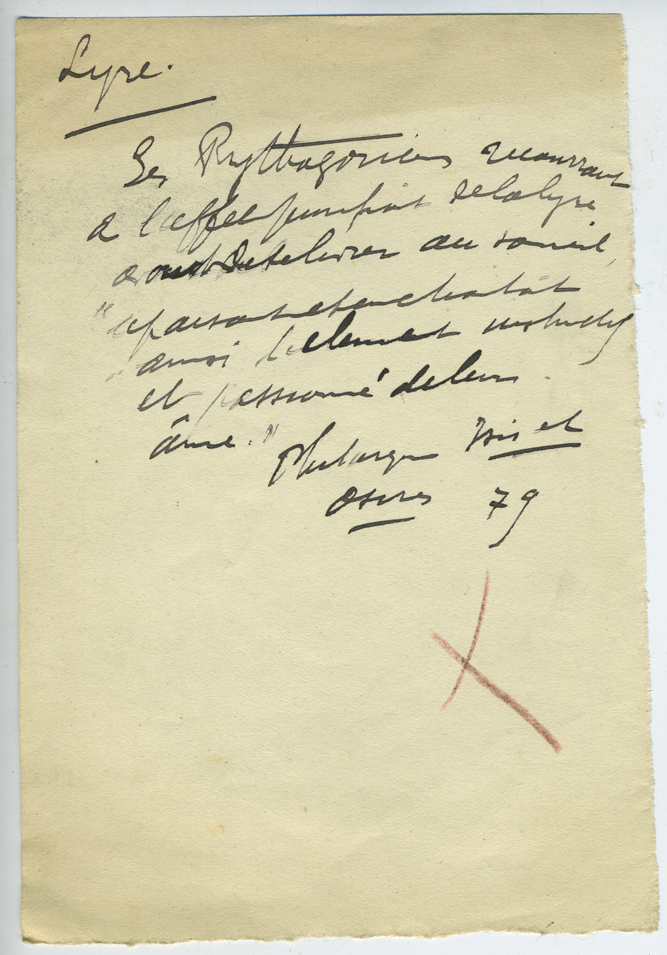 Lyre.
Les Pythagoriciens recouraient
a l'effet purifiant de la lyre
avant de se livrer au sommeil,
"apaisant et enchantant
ainsi l'element instinctif
et passionné de leur
âme."
Plutarque Isis et
Osiris 79